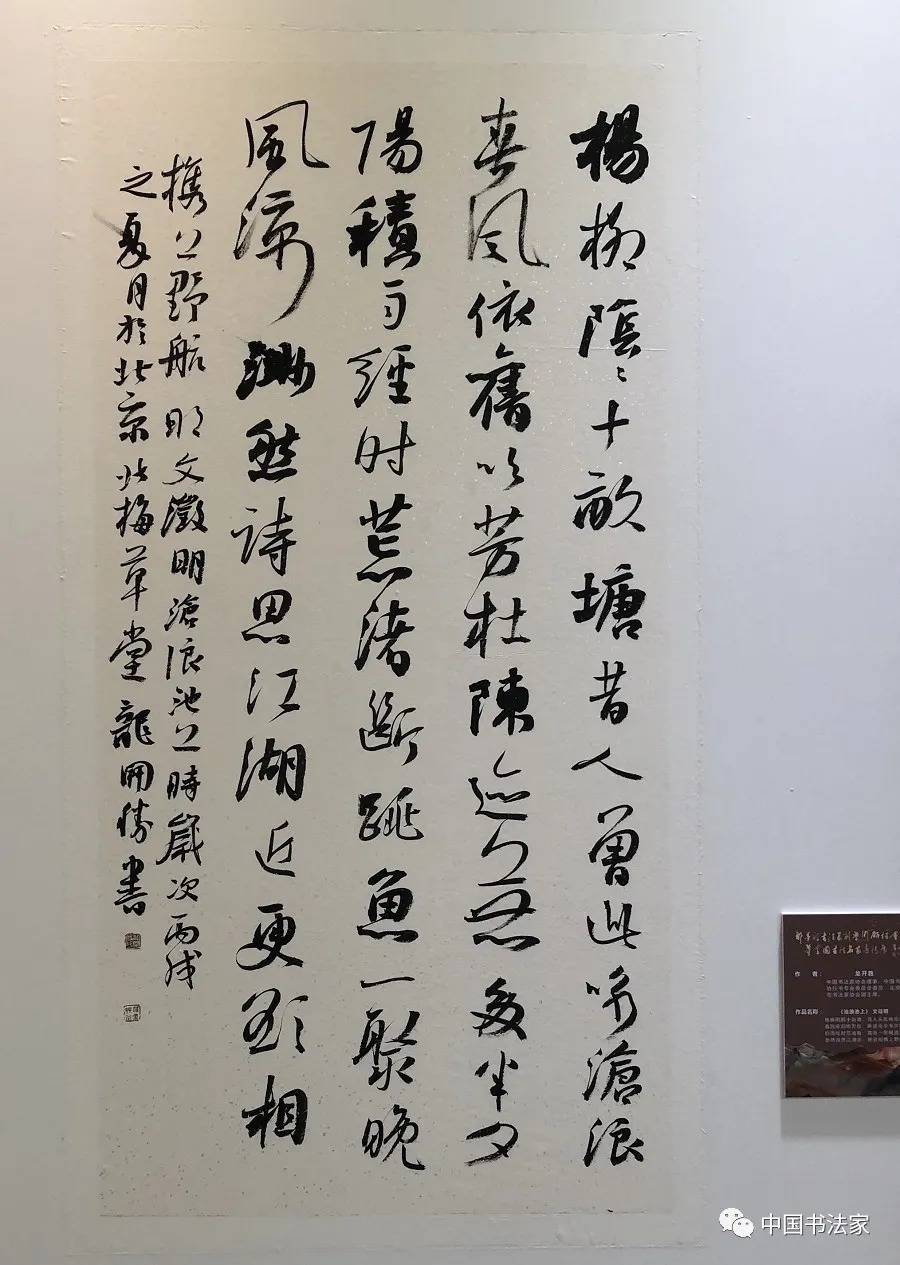 楊柳陰〻十畝塘昔人曾此咏滄浪
春风依舊吹芳杜陳迹無多半夕
陽積雨經时荒渚斷跳魚一聚晚
風凉渺然詩思江湖近更欲相
携上野航 明文徵明滄浪池上時歲次丙戌
之夏月於北京北梅草堂龍開勝書
作 者： 龙开胜
作品名称 《沧浪池上》文徵明
中国书法家